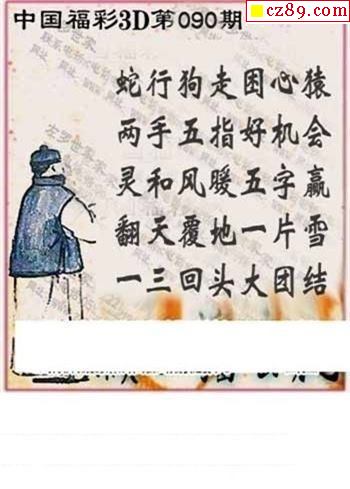 中国福彩3D第090期
cz89.com
蛇行狗走困心猿
两手五指好机会
灵和风暖五字赢
翻天覆地一片雪
一三回头大团结